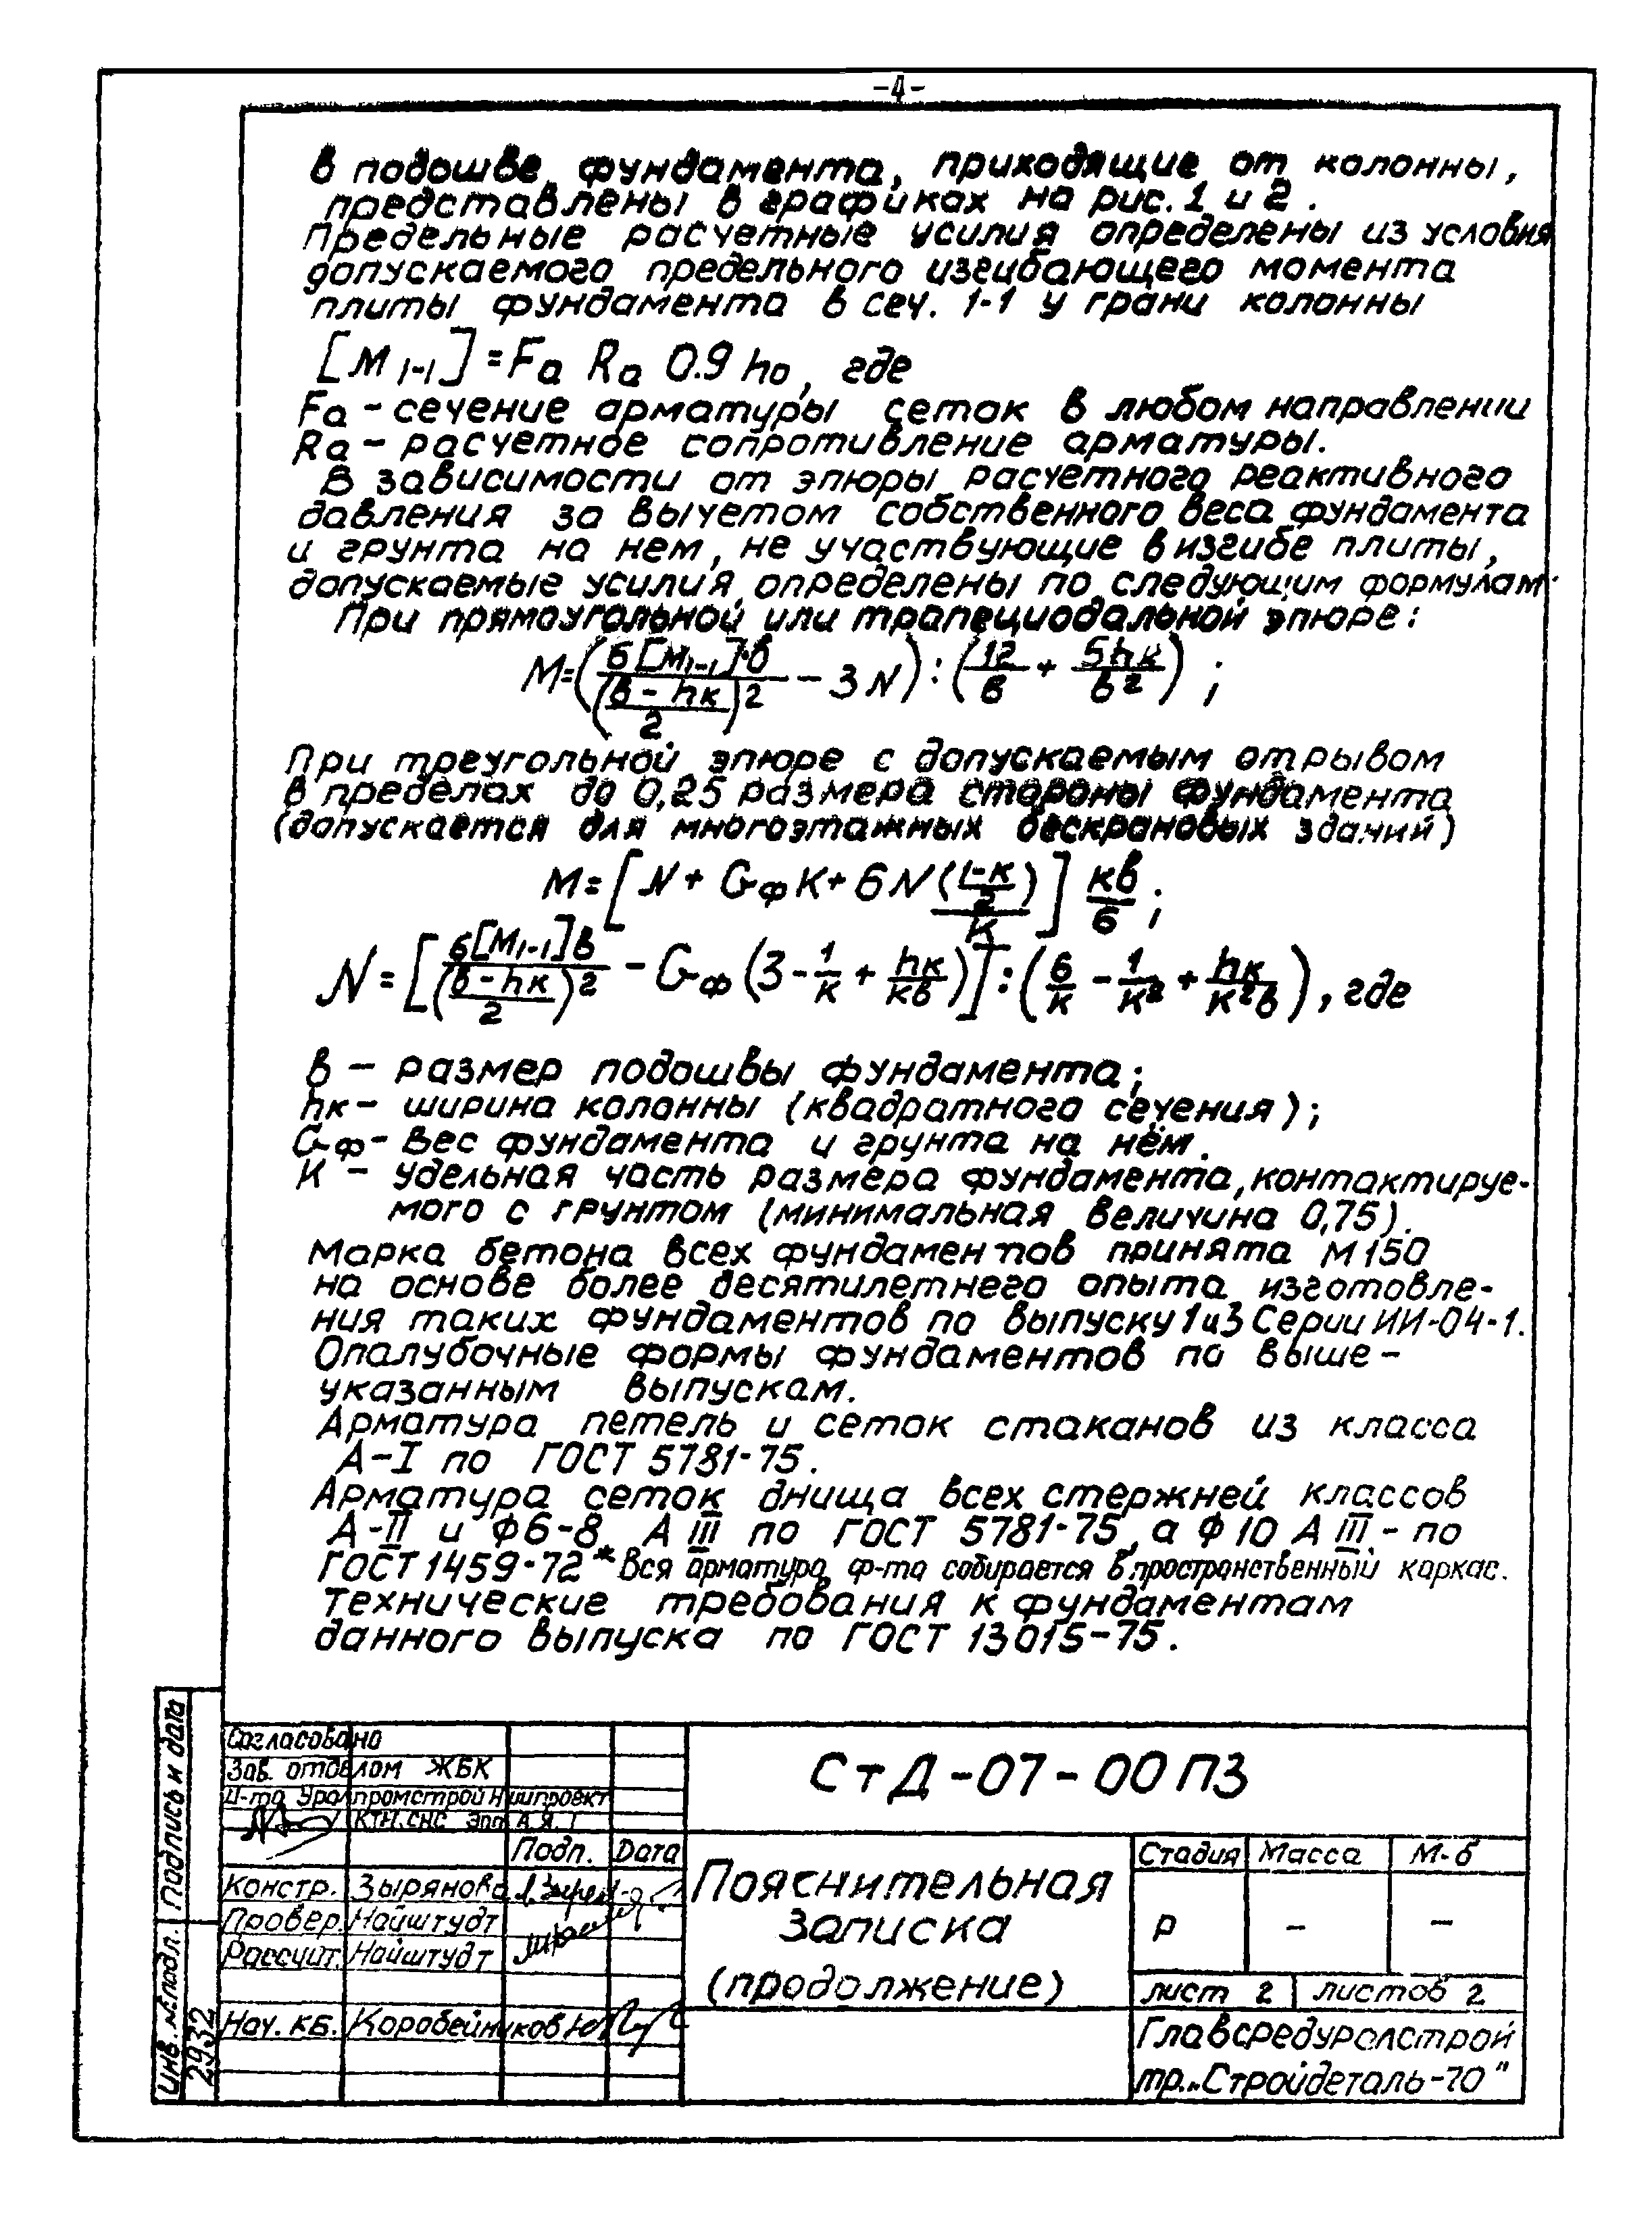 -4-
в подошве фундамента, приходящие от колонны,
представлены в графиках на рис. 1 и 2.
Предельные расчетные усилия определены из условия
допускаемого предельного изгибающего момента
плиты фундамента в сеч. 1-1 у грани колонны
[M 1-1] = Fa Ra 0.9 ho, где
Fa - сечение арматуры сеток в любом направлении
Ra - расчетное сопротивление арматуры.
В зависимости от эпюры расчетного реактивного
давления за вычетом собственного веса фундамента
и грунта на нем, не участвующие в изгибе плиты,
допускаемые усилия определены по следующим формулам:
При прямоугольной или трапециодальной эпюре:
M = (6[M1-1]·в / ((в - hк)/2)² - 3N) : (12/в + 5hк/в²) ;
При треугольной эпюре с допускаемым отрывом
в пределах до 0,25 размера стороны фундамента
(допускается для многоэтажных бескрановых зданий)
M = [N + Gф K + 6N ((1-к)/2)/к] кв/6 ;
N = [6[M1-1]в / ((в - hк)/2)² - Gф (3 - 1/к + hк/кв)] : (6/к - 1/к² + hк/к²в), где
в - размер подошвы фундамента;
hк - ширина колонны (квадратного сечения);
Gф - Вес фундамента и грунта на нём.
К - удельная часть размера фундамента, контактируе-
мого с грунтом (минимальная величина 0,75).
Марка бетона всех фундаментов принята М150
на основе более десятилетнего опыта изготовле-
ния таких фундаментов по выпуску 1 и 3 Серии ИИ-04-1.
Опалубочные формы фундаментов по выше-
указанным выпускам.
Арматура петель и сеток стаканов из класса
А-I по ГОСТ 5781-75.
Арматура сеток днища всех стержней классов
А-II и Ф6-8 А III по ГОСТ 5781-75, а Ф 10 А III - по
ГОСТ 1459-72* Вся арматура ф-та собирается в пространственный каркас.
Технические требования к фундаментам
данного выпуска по ГОСТ 13015-75.
Согласовано
Зав. отделом ЖБК
И-та УралпромстройНиипроект
КТН.СНС Эпп А.Я.
Подп. Дата
Констр. Зырянова
Провер. Найштудт
Рассчит. Найштудт
Нач. КБ. Коробейников Ю
СтД-07-00 ПЗ
Пояснительная
записка
(продолжение)
Стадия Масса М-б
Р - -
лист 2 листов 2
Главсредуралстрой
тр. „Стройдеталь-70"
Подпись и дата
Инв. № подл.
2932